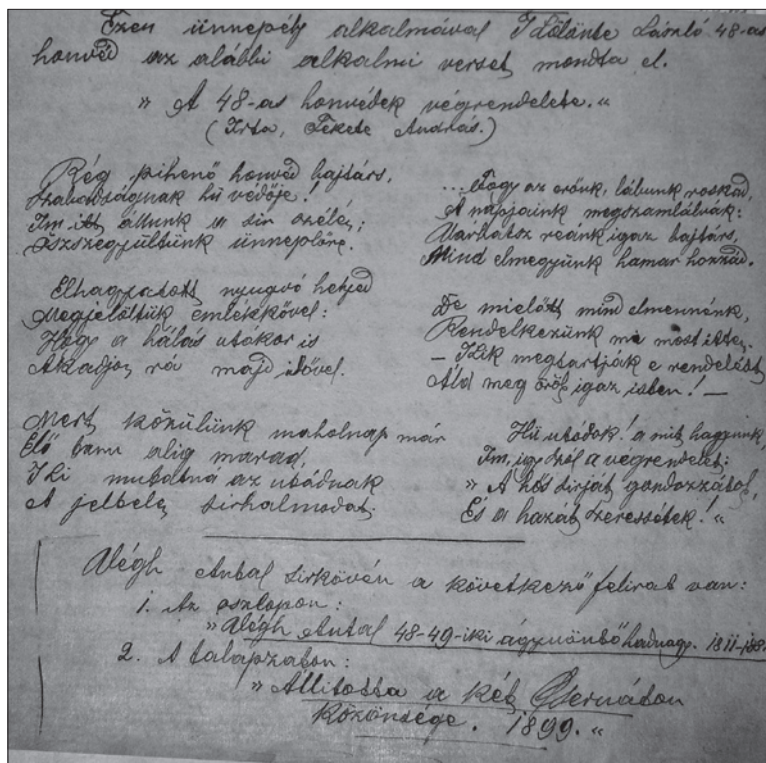 Ezen ünnepély alkalmával Lőlönte László 48-as
honvéd az alábbi alkalmi verset mondta el.
» A 48-as honvédek végrendelete. «
(Irta, Fekete András.)
Rég pihenő honvéd bajtárs,
Szabadságnak hű védője!
Im itt állunk a sir szélén;
Öszszegyültünk ünneplőre.
Elhagyatott nyugvó helyed
Megjelöltük emlékkővel:
Hogy a hálás utókor is
Akadjon rá majd idővel.
Mert közülünk maholnap már
Élő tanu alig marad,
Ki mutatná az utódnak
A jeltelen sirhalmodat.
... Fogy az erőnk, lábunk roskad,
A napjaink megszámlálvák:
Várhatsz reánk igaz bajtárs,
Mind elmegyünk hamar hozzád.
De mielőtt mind elmennénk,
Rendelkezünk mi most itten.
– Kik megtartják e rendelést
Áld meg örök igaz isten! –
Hű utódok! a mit hagyunk,
Im, igy szól a végrendelet:
» A hős sirját gondozzátok,
És a hazát szeressétek! «
Végh Antal sirkövén a következő felirat van:
1. Az oszlopon:
» Végh Antal 48-49-iki ágyuöntő hadnagy. 1811-188
2. A talapzaton:
» Állitotta a két Csernáton
közönsége. 1899. «